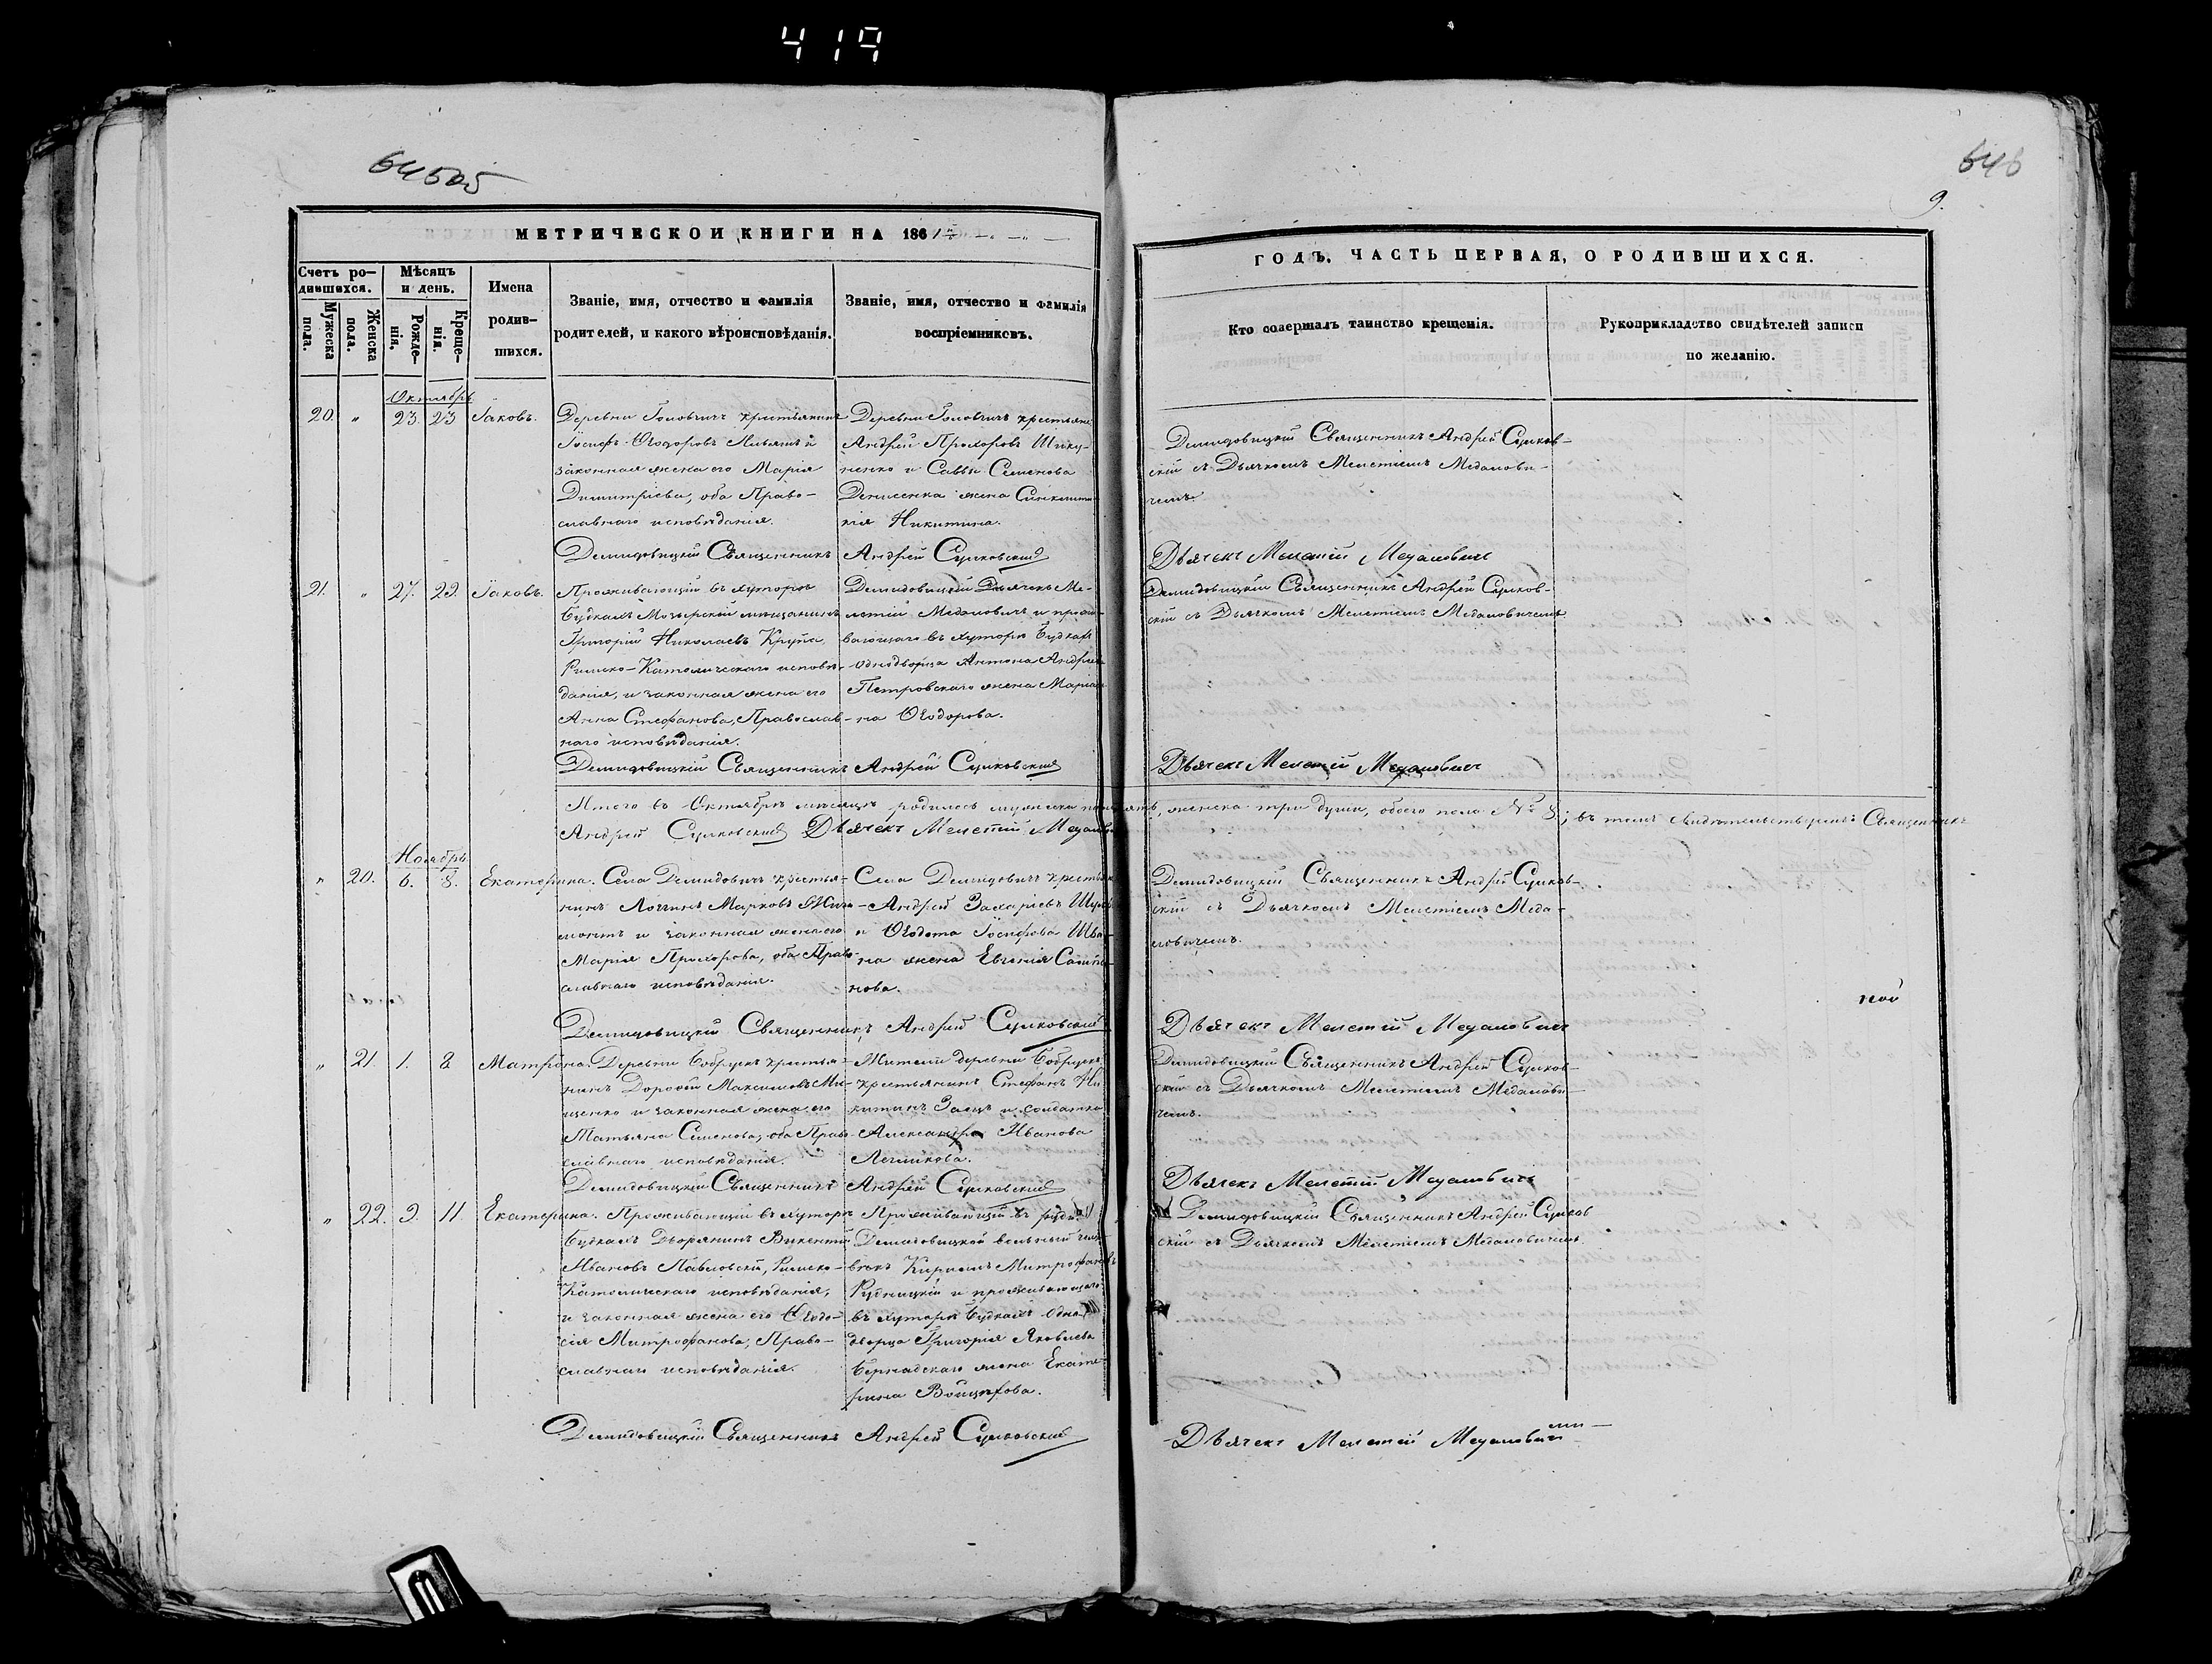 419
64505
646
9.
МЕТРИЧЕСКОЙ КНИГИ НА 1861й
ГОДЪ. ЧАСТЬ ПЕРВАЯ, О РОДИВШИХСЯ.
Счетъ родившихся.
Мужеска пола.
Женска пола.
Мѣсяцъ и день.
Рожденія.
Крещенія.
Имена родившихся.
Званіе, имя, отчество и фамилія
родителей, и какого вѣроисповѣданія.
Званіе, имя, отчество и фамилія
воспріемниковъ.
Кто совершалъ таинство крещенія.
Рукоприкладство свидѣтелей записи
по желанію.
Октябрь
20. " 23. 23 Іаковъ.
Деревни крестьянинъ
Іосифъ Ѳеодоровъ и
законная жена его Марія
Димитріева, оба Право-
славнаго исповѣданія.
Деревни крестьяне
Андрей Прохоровъ Шику-
ненко и Саввы Семенова
Денисенка жена Синклити-
кія Никитина.
Демидовицкій Священникъ Андрей Сулков-
скій съ Дьячкомъ Мелетіемъ Медалови-
чемъ.
Демидовицкій Священникъ Андрей Сулковскій
Дьячекъ Мелетій Медаловичъ
21. " 27. 29. Іаковъ.
Проживающій въ хуторѣ
Будкахъ Мозырскій мѣщанинъ
Григорій Николаевъ Крупа
Римско-Католическаго исповѣ-
данія, и законная жена его
Анна Стефанова, Православ-
наго исповѣданія.
Демидовицкій Дьячекъ Ме-
летій Медаловичъ и прожи-
вающаго въ хуторѣ Будкахъ
однодворца Антона Андреева
Петровскаго жена Маріан-
на Ѳеодорова.
Демидовицкій Священникъ Андрей Сулков-
скій съ Дьячкомъ Мелетіемъ Медаловичемъ
Демидовицкій Священникъ Андрей Сулковскій
Дьячекъ Мелетій Медаловичъ
Итого въ Октябрѣ мѣсяцѣ родилось мужеска пять, женска три души, обоего пола № 8; въ томъ свидѣтельствуемъ: Священникъ
Андрей Сулковскій Дьячекъ Мелетій Медаловичъ
Ноябрь
" 20. 6. 8. Екатерина.
Села Демидовичъ крестья-
нинъ Логинъ Марковъ
и законная жена его
Марія Прохорова, оба Право-
славнаго исповѣданія.
Села Демидовичъ крестьяне
Андрей Захаріевъ
и Ѳеодота Іосифова
на жена Евгенія
нова.
Демидовицкій Священникъ Андрей Сулков-
скій съ Дьячкомъ Мелетіемъ Меда-
ловичемъ.
ной
Демидовицкій Священникъ Андрей Сулковскій
Дьячекъ Мелетій Медаловичъ
" 21. 1. 8 Матрона.
Деревни Бобрукъ крестья-
нинъ Дороѳей Максимовъ Ми-
щенко и законная жена его
Татьяна Семенова, оба Право-
славнаго исповѣданія.
Жители деревни Бобрукъ
крестьянинъ Стефанъ Ни-
китинъ Заецъ и солдатка
Александра Иванова
Демидовицкій Священникъ Андрей Сулков-
скій съ Дьячкомъ Мелетіемъ Медалови-
чемъ.
Демидовицкій Священникъ Андрей Сулковскій
Дьячекъ Мелетій Медаловичъ
" 22. 9. 11. Екатерина.
Проживающій въ хуторѣ
Будкахъ Дворянинъ Викентій
Ивановъ Павловскій, Римско-
Католическаго исповѣданія,
и законная жена его Ѳеодо-
сія Митрофанова, Право-
славнаго исповѣданія.
Проживающій въ рудни
Демидовицкой вольный чело-
вѣкъ Кириллъ Митрофановъ
Рудницкій и проживающаго
въ хуторѣ Будкахъ одно-
дворца Григорія Яковлева
Бернадскаго жена Екате-
рина Войцехова.
Демидовицкій Священникъ Андрей Сулков
скій съ Дьячкомъ Мелетіемъ Медаловичемъ
Демидовицкій Священникъ Андрей Сулковскій
Дьячекъ Мелетій Медаловичъ